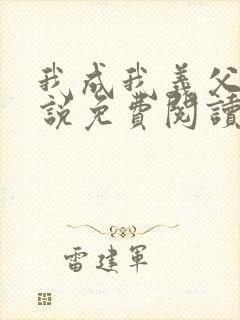 我成我義父
説免費閱讀
雷建軍